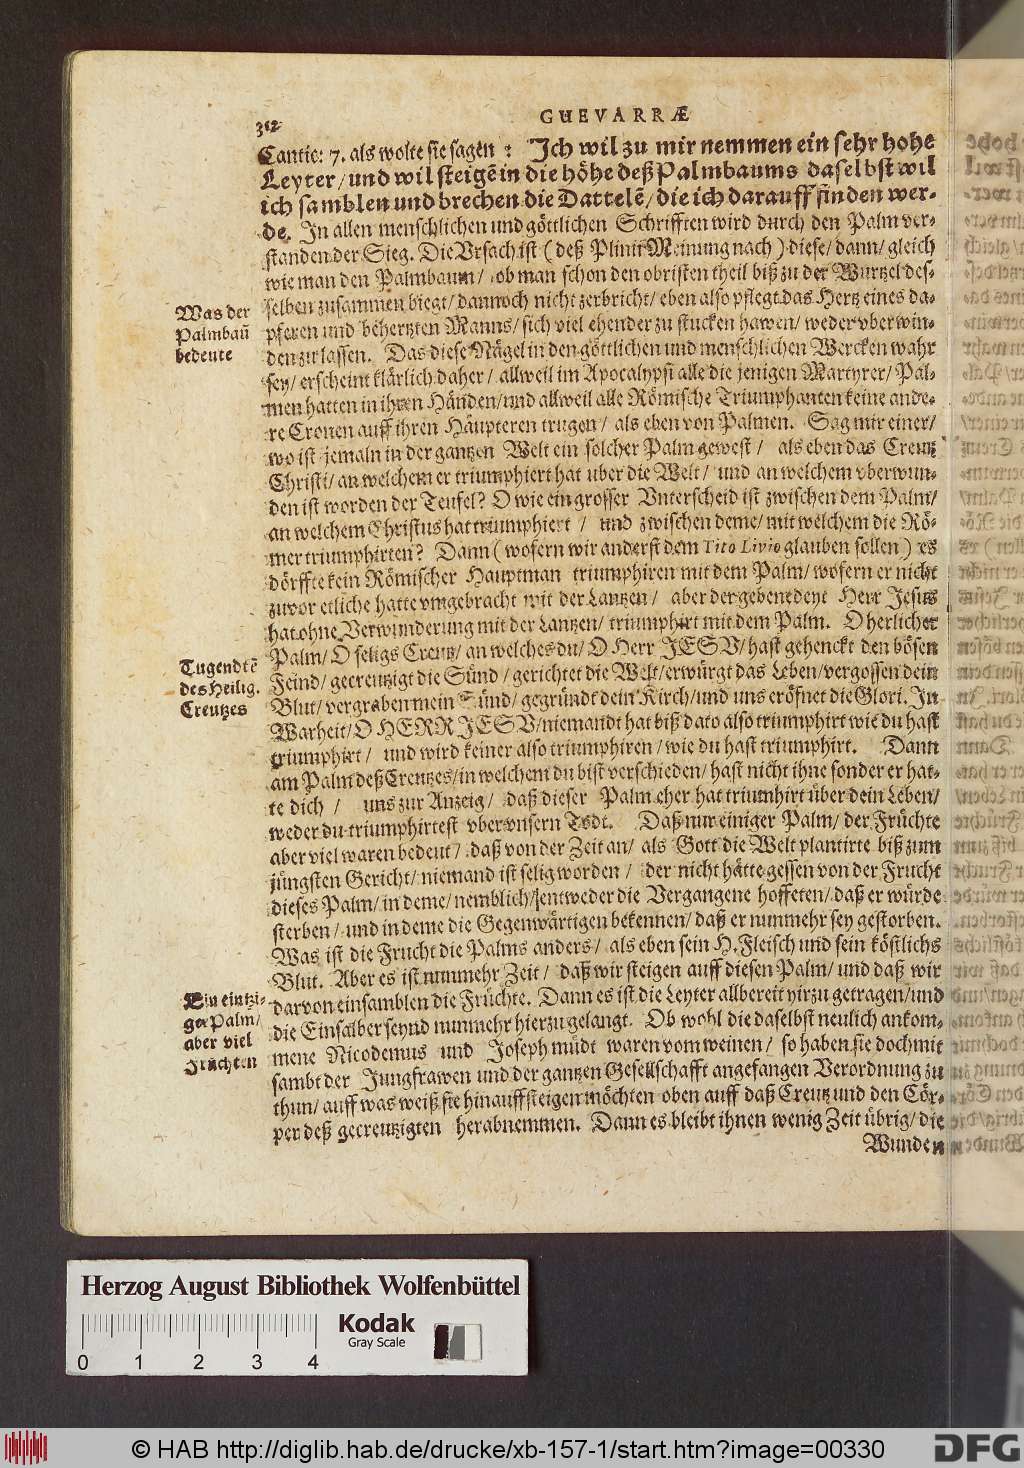 312
GUEVARRÆ
Cantic: 7. als wolte sie sagen : Ich wil zu mir nemmen ein sehr hohe
Leyter/ und wil steigē in die höhe deß Palmbaums daselbst wil
ich samblen und brechen die Dattelē/ die ich darauff finden wer-
de. In allen menschlichen und göttlichen Schrifften wird durch den Palm ver-
standen der Sieg. Die Ursach ist (deß Plinii Meinung nach) diese/ dann/ gleich
wie man den Palmbaum/ ob man schon den obristen theil biß zu der Wurtzel des-
selben zusammen biegt/ dannoch nicht zerbricht/ eben also pflegt das Hertz eines da-
pferen und behertzten Manns/ sich viel ehender zu stucken hawen/ weder vberwin-
den zu lassen. Das diese Nägel in den göttlichen und menschlichen Wercken wahr
sey/ erscheint klärlich daher/ allweil im Apocalypsi alle die jenigen Martyrer/ Pal-
men hatten in ihren Händen/ und allweil alle Römische Triumphanten keine ande-
re Cronen auff ihren Häupteren trugen/ als eben von Palmen. Sag mir einer/
wo ist jemaln in der gantzen Welt ein solcher Palm gewest/ als eben das Creutz
Christi/ an welchem er triumphiert hat über die Welt/ und an welchem vberwun-
den ist worden der Teufel? O wie ein grosser Vnterscheid ist zwischen dem Palm/
an welchem Christus hat triumphiert / und zwischen deme/ mit welchem die Rö-
mer triumphirten? Dann (wofern wir anderst dem Tito Livio glauben sollen) es
dörffte kein Römischer Hauptman triumphiren mit dem Palm/ wofern er nicht
zuvor etliche hatte vmgebracht mit der Lantzen/ aber der gebenedeyt Herr Jesus
hat ohne Verwunderung mit der Lantzen/ triumphirt mit dem Palm. O herlicher
Palm/ O seligs Creutz/ an welches du/ O Herr JESU/ hast gehenckt den bösen
Feind/ gecreutzigt die Sünd/ gerichtet die Welt/ erwürgt das Leben/ vergossen dein
Blut/ vergraben mein Sünd/ gegründt dein Kirch/ und uns eröfnet die Glori. In
Warheit/ O HERR JESU/ niemandt hat biß dato also triumphirt wie du hast
triumphirt/ und wird keiner also triumphiren/ wie du hast triumphirt. Dann
am Palm deß Creutzes/ in welchem du bist verschieden/ hast nicht ihne sonder er hat-
te dich / uns zur Anzeig/ daß dieser Palm eher hat triumhirt über dein Leben/
weder du triumphirtest vber unsern Todt. Daß nur einiger Palm/ der Früchte
aber viel waren bedeut/ daß von der Zeit an/ als Gott die Welt plantirte biß zum
jüngsten Gericht/ niemand ist selig worden / der nicht hätte gessen von der Frucht
dieses Palm/ in deme/ nemblich/ jentweder die Vergangene hoffeten/ daß er würde
sterben/ und in deme die Gegenwärtigen bekennen/ daß er nunmehr sey gestorben.
Was ist die Frucht die Palms anders/ als eben sein H. Fleisch und sein köstlichs
Blut. Aber es ist nunmehr Zeit/ daß wir steigen auff diesen Palm/ und daß wir
darvon einsamblen die Früchte. Dann es ist die Leyter allbereit hirzu getragen/ und
die Einsalber seynd nunmehr hierzu gelangt. Ob wohl die daselbst neulich ankom-
mene Nicodemus und Joseph müdt waren vom weinen/ so haben sie doch mit
sambt der Jungfrawen und der gantzen Gesellschafft angefangen Verordnung zu
thun/ auff was weiß sie hinauff steigen möchten oben auff daß Creutz und den Cör-
per deß gecreutzigten herabnemmen. Dann es bleibt ihnen wenig Zeit übrig/ die
Wunden
Was der
Palmbaū
bedeute
Tugendtē
des Heilig.
Creutzes
Ein eintzi-
ger Palm/
aber viel
Früchten
Herzog August Bibliothek Wolfenbüttel
Kodak
Gray Scale
0 1 2 3 4
© HAB http://diglib.hab.de/drucke/xb-157-1/start.htm?image=00330
DFG